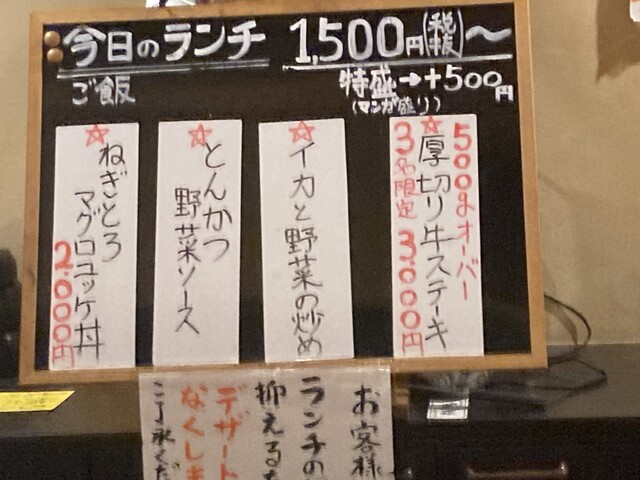 今日のランチ 1,500円(税抜)〜
ご飯 特盛→+500円
(マンガ盛り)
500gオーバー
☆厚切り牛ステーキ
3名限定 3.000円
☆イカと野菜の炒め
☆とんかつ
野菜ソース
☆ねぎとろ
マグロユッケ丼
2.000円
お客様
ランチの
抑えるた
デザート
なくしま
ご了承くだ